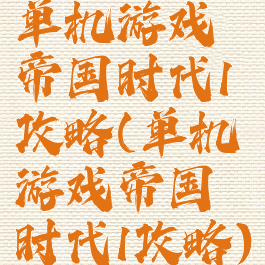 单机游戏
帝国时代1
攻略(单机
游戏帝国
时代1攻略)